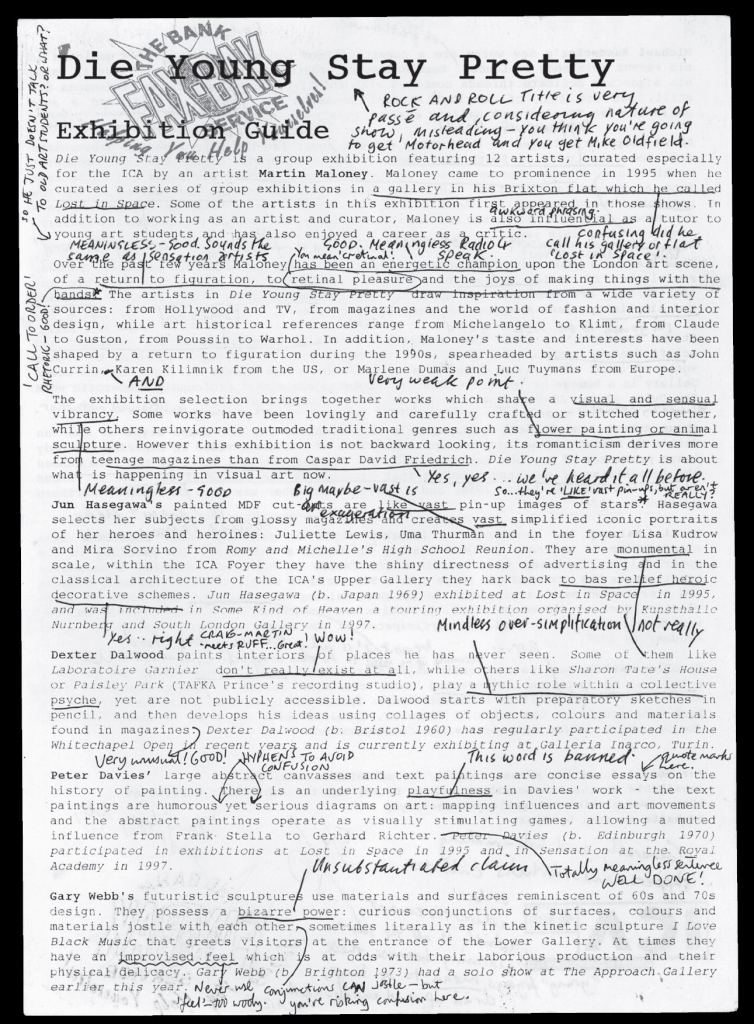 THE BANK
FAX-BAK
SERVICE
Helping You Help Yourselves!
Die Young Stay Pretty
Exhibition Guide
ROCK AND ROLL Title is very
passé and, considering nature of
show, misleading – you think you're going
to get Motorhead and you get Mike Oldfield.
SO HE JUST DOESN'T TALK
TO OLD ART STUDENTS? OR WHAT?
Die Young Stay Pretty is a group exhibition featuring 12 artists, curated especially
for the ICA by an artist Martin Maloney. Maloney came to prominence in 1995 when he
curated a series of group exhibitions in a gallery in his Brixton flat which he called
Lost in Space. Some of the artists in this exhibition first appeared in those shows. In
awkward phrasing.
addition to working as an artist and curator, Maloney is also influential as a tutor to
young art students and has also enjoyed a career as a critic.
confusing did he
call his gallery or flat
'Lost in Space'.
MEANINGLESS – Good. Sounds the
same as Sensation artists
GOOD. Meaningless Radio 4
speak.
You mean 'retinal'!
Over the past few years Maloney has been an energetic champion upon the London art scene,
of a return to figuration, to retinal pleasure and the joys of making things with the
hands. The artists in Die Young Stay Pretty draw inspiration from a wide variety of
sources: from Hollywood and TV, from magazines and the world of fashion and interior
design, while art historical references range from Michelangelo to Klimt, from Claude
to Guston, from Poussin to Warhol. In addition, Maloney's taste and interests have been
shaped by a return to figuration during the 1990s, spearheaded by artists such as John
Currin, Karen Kilimnik from the US, or Marlene Dumas and Luc Tuymans from Europe.
'CALL TO ORDER'
RHETORIC – GOOD!
AND
Very weak point.
The exhibition selection brings together works which share a visual and sensual
vibrancy. Some works have been lovingly and carefully crafted or stitched together,
while others reinvigorate outmoded traditional genres such as flower painting or animal
sculpture. However this exhibition is not backward looking, its romanticism derives more
from teenage magazines than from Caspar David Friedrich. Die Young Stay Pretty is about
what is happening in visual art now.
Yes, yes... we've heard it all before.
Meaningless – GOOD
Big maybe – vast is
an exageration
So... they're 'LIKE' vast pin-ups, but aren't
REALLY?
Jun Hasegawa's painted MDF cut-outs are like vast pin-up images of stars. Hasegawa
selects her subjects from glossy magazines and creates vast simplified iconic portraits
of her heroes and heroines: Juliette Lewis, Uma Thurman and in the foyer Lisa Kudrow
and Mira Sorvino from Romy and Michelle's High School Reunion. They are monumental in
scale, within the ICA Foyer they have the shiny directness of advertising and in the
classical architecture of the ICA's Upper Gallery they hark back to bas relief heroic
decorative schemes. Jun Hasegawa (b. Japan 1969) exhibited at Lost in Space in 1995,
and was included in Some Kind of Heaven a touring exhibition organised by Kunsthalle
Nurnberg and South London Gallery in 1997.
Yes.. right
CRAIG-MARTIN
meets RUFF... Great! WOW!
Mindless over-simplification
not really
Dexter Dalwood paints interiors of places he has never seen. Some of them like
Laboratoire Garnier don't really exist at all, while others like Sharon Tate's House
or Paisley Park (TAFKA Prince's recording studio), play a mythic role within a collective
psyche, yet are not publicly accessible. Dalwood starts with preparatory sketches in
pencil, and then develops his ideas using collages of objects, colours and materials
found in magazines. Dexter Dalwood (b. Bristol 1960) has regularly participated in the
Whitechapel Open in recent years and is currently exhibiting at Galleria Inarco, Turin.
Very unusual! GOOD!
HYPHENS TO AVOID
CONFUSION
This word is banned.
quote marks
here.
Peter Davies' large abstract canvasses and text paintings are concise essays on the
history of painting. There is an underlying playfulness in Davies' work - the text
paintings are humorous yet serious diagrams on art: mapping influences and art movements
and the abstract paintings operate as visually stimulating games, allowing a muted
influence from Frank Stella to Gerhard Richter. Peter Davies (b. Edinburgh 1970)
participated in exhibitions at Lost in Space in 1995 and in Sensation at the Royal
Academy in 1997.
Unsubstantiated claim
Totally meaningless sentence
WELL DONE!
Gary Webb's futuristic sculptures use materials and surfaces reminiscent of 60s and 70s
design. They possess a bizarre power: curious conjunctions of surfaces, colours and
materials jostle with each other, sometimes literally as in the kinetic sculpture I Love
Black Music that greets visitors at the entrance of the Lower Gallery. At times they
have an improvised feel which is at odds with their laborious production and their
physical delicacy. Gary Webb (b. Brighton 1973) had a solo show at The Approach Gallery
earlier this year.
Never use
'feel' – too woody.
conjunctions CAN jostle – but
you're risking confusion here.